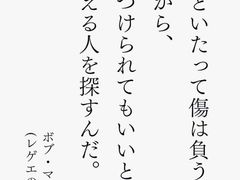 といたって傷は負う
がら、
つけられてもいいと
える人を探すんだ。
ボブ・マ
（レゲエの